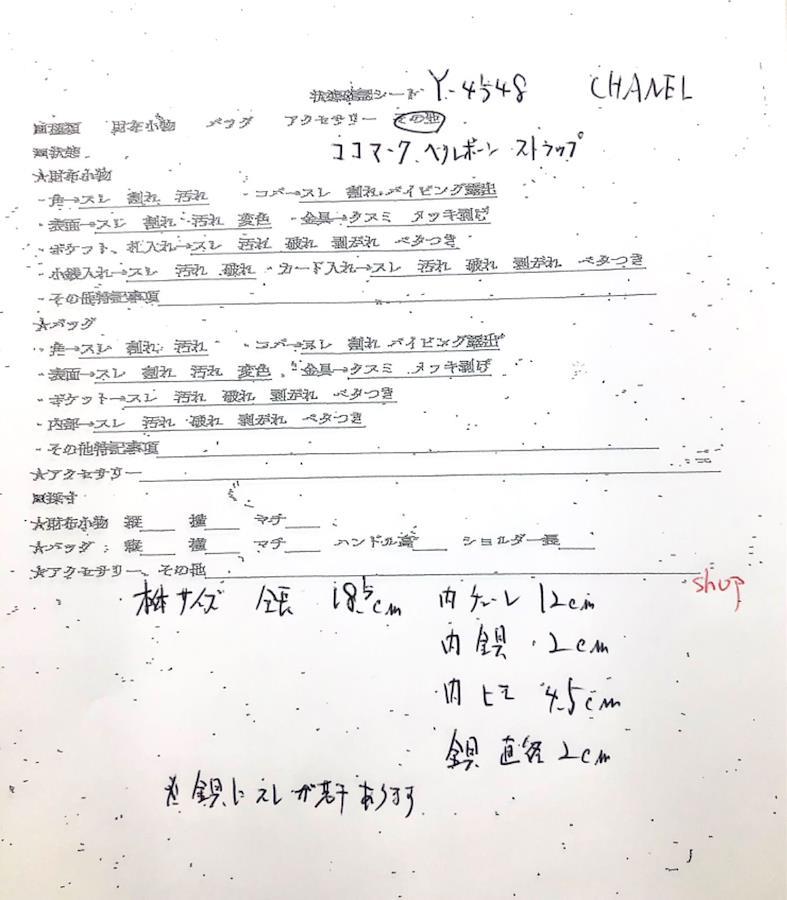 状態確認シート Y-4548 CHANEL
■種類 財布小物 バッグ アクセサリー その他
■状態 ココマーク ヘリンボーン ストラップ
★財布小物
・角→スレ 割れ 汚れ ・コバ→スレ 割れ パイピング露出
・表面→スレ 割れ 汚れ 変色 ・金具→クスミ メッキ剥げ
・ポケット、札入れ→スレ 汚れ 破れ 剥がれ ベタつき
・小銭入れ→スレ 汚れ 破れ ・カード入れ→スレ 汚れ 破れ 剥がれ ベタつき
・その他特記事項
★バッグ
・角→スレ 割れ 汚れ ・コバ→スレ 割れ パイピング露出
・表面→スレ 割れ 汚れ 変色 ・金具→クスミ メッキ剥げ
・ポケット→スレ 汚れ 破れ 剥がれ ベタつき
・内部→スレ 汚れ 破れ 剥がれ ベタつき
・その他特記事項
★アクセサリー
■採寸
★財布小物 縦 横 マチ
★バッグ 縦 横 マチ ハンドル高 ショルダー長
★アクセサリー、その他
shop
サイズ 全長 18.5cm 内 12cm
内 金具 2cm
内 ヒモ 4.5cm
金具 直径 2cm
※金具にスレが若干あります